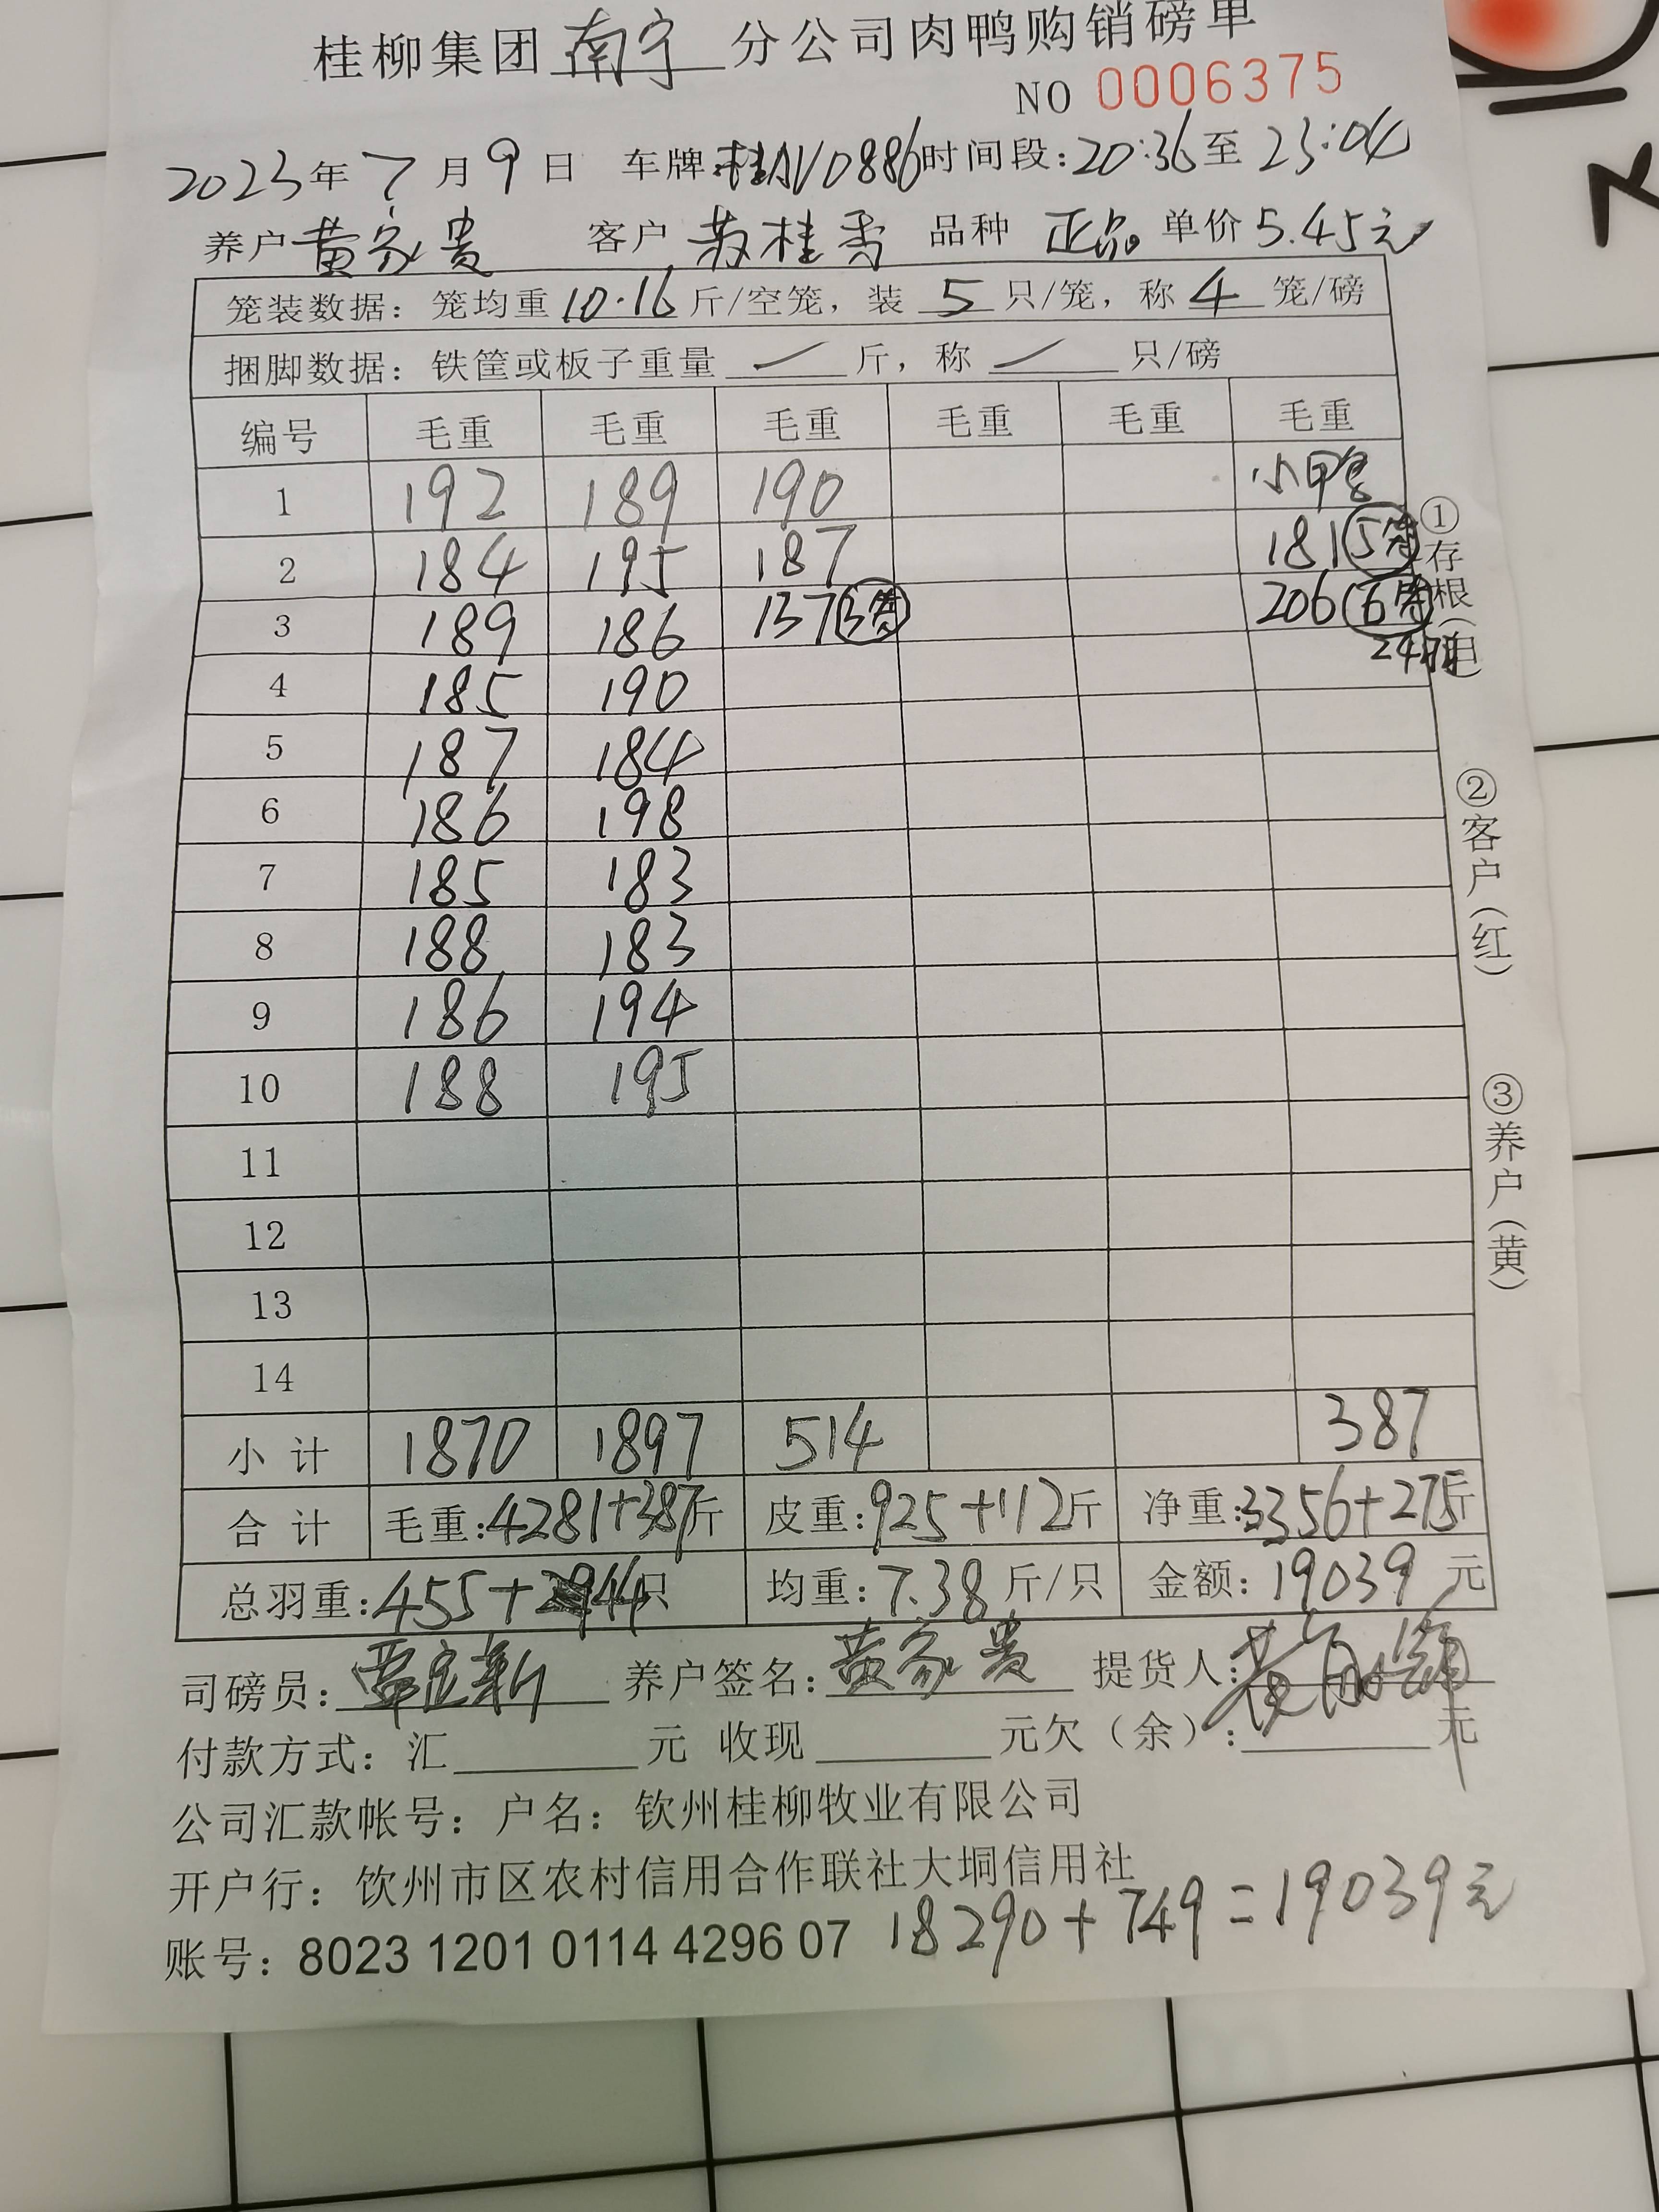 桂柳集团南宁分公司肉鸭购销磅单
NO 0006375
2023年7月9日 车牌:桂AV0886时间段:20:36至23:04
养户黄家贵 客户苏桂香 品种 正品 单价5.45元
笼装数据: 笼均重10.16斤/空笼, 装5只/笼, 称4笼/磅
捆脚数据: 铁筐或板子重量 / 斤, 称 / 只/磅
编号 毛重 毛重 毛重 毛重 毛重 毛重
1 192 189 190 小甲
2 184 195 187 181 5
3 189 186 137 3 206 6
4 185 190 24
5 187 184
6 186 198
7 185 183
8 188 183
9 186 194
10 188 195
11
12
13
14
小计 1870 1897 514 387
合计 毛重:4281+387斤 皮重:925+112斤 净重:3356+275斤
总羽重:455+44只 均重:7.38斤/只 金额:19039元
司磅员: 养户签名:黄家贵 提货人:
付款方式: 汇 元 收现 元欠(余): 元
公司汇款帐号: 户名: 钦州桂柳牧业有限公司
开户行: 钦州市区农村信用合作联社大垌信用社
账号: 8023 1201 0114 4296 07 18290+749=19039元
①存根(白)
②客户(红)
③养户(黄)